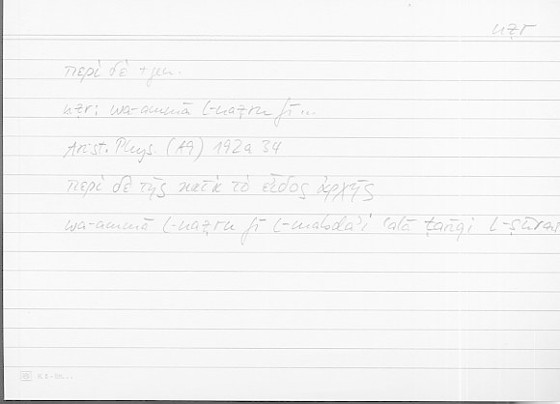 nẓr
περὶ δὲ + gen.
nẓr; wa-ammā l-naẓru fī...
Arist. Phys. (A9) 192a 34
περὶ δὲ τῆς κατὰ τὸ εἶδος ἀρχῆς
wa-ammā l-naẓru fī l-mabdaʾi ʿalā ṭarīqi l-ṣūrati